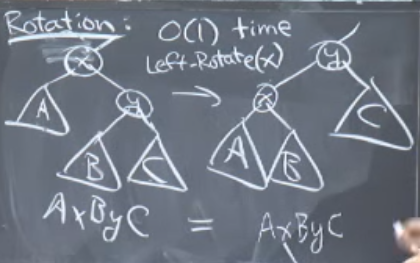 Rotation: O(1) time
Left-Rotate(x)
x
y
A
y
x
C
B
C
A
B
AxByC = AxByC